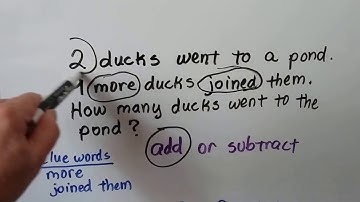 2 ducks went to a pond.
more ducks joined them.
How many ducks went to the
pond?
add or subtract
clue words
more
joined them